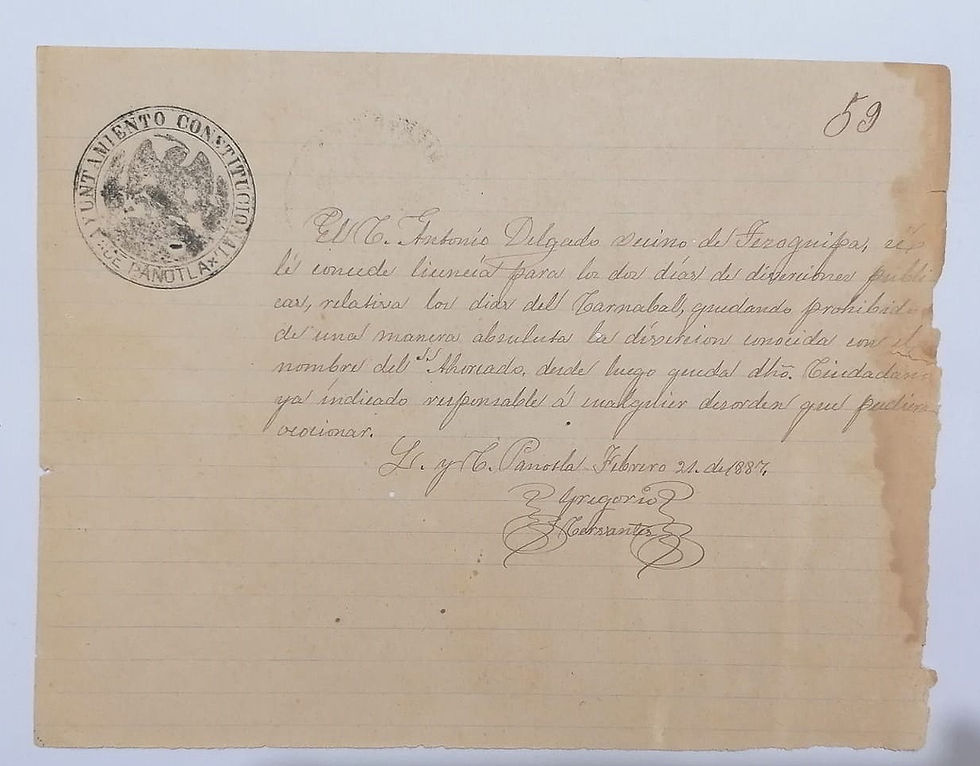 59
AYUNTAMIENTO CONSTITUCIONAL
DE PANOTLA
El C. Antonio Delgado vecino de Tezoquipa, se
lé concede licencia para los dos días de diverciones publi
cas, relativa los dias del Carnabal, quedando prohibido
de una manera absuluta la divercion conocida con el
nombre del "Ahorcado, desde luego queda dho. Ciudadano
ya indicado responsable á cualquier desorden que pudiera
ocacionar.
L. y C. Panotla Febrero 21. de 1887.
Gregorio
Cervantes